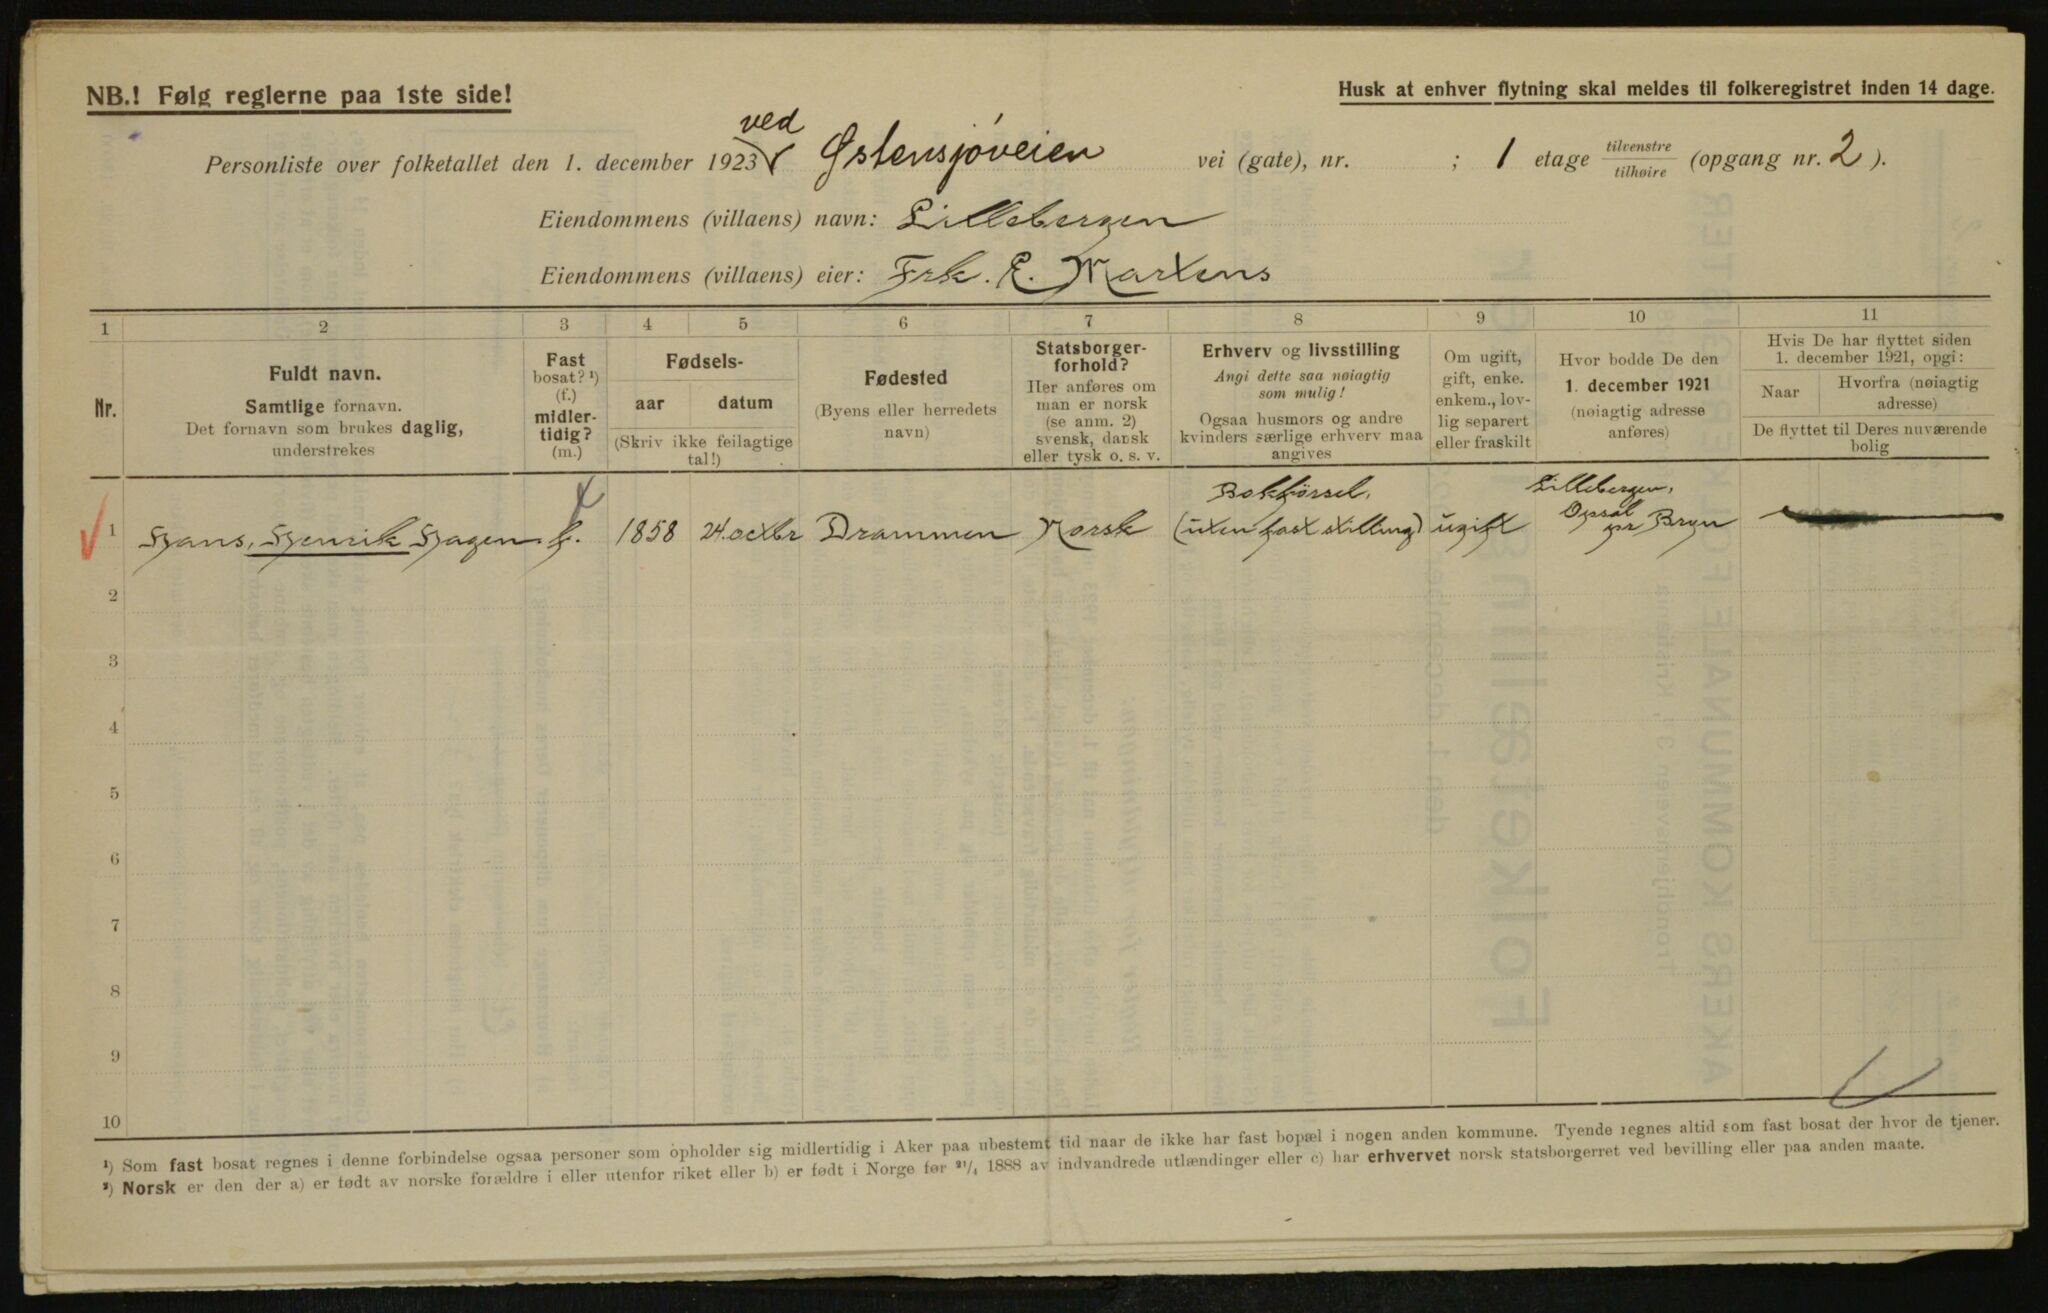 NB.! Følg reglerne paa 1ste side!
Husk at enhver flytning skal meldes til folkeregistret inden 14 dage.
ved
Personliste over folketallet den 1. december 1923 Østensjøveien vei (gate), nr. ; 1 etage tilvenstre tilhøire (opgang nr. 2).
Eiendommens (villaens) navn: Lillebergen
Eiendommens (villaens) eier: Frk. E. Martens
1 2 3 4 5 6 7 8 9 10 11
Nr.
Fuldt navn.
Samtlige fornavn.
Det fornavn som brukes daglig,
understrekes
Fast
bosat? ¹)
(f.)
midler-
tidig?
(m.)
Fødsels-
aar datum
(Skriv ikke feilagtige
tal!)
Fødested
(Byens eller herredets
navn)
Statsborger-
forhold?
Her anføres om
man er norsk
(se anm. 2)
svensk, dansk
eller tysk o. s. v.
Erhverv og livsstilling
Angi dette saa nøiagtig
som mulig!
Ogsaa husmors og andre
kvinders særlige erhverv maa
angives
Om ugift,
gift, enke.
enkem., lov-
lig separert
eller fraskilt
Hvor bodde De den
1. december 1921
(nøiagtig adresse
anføres)
Hvis De har flyttet siden
1. december 1921, opgi:
Naar
Hvorfra (nøiagtig
adresse)
De flyttet til Deres nuværende
bolig
1 Hans, Henrik Hagen f. 1858 24. octbr Drammen Norsk
Bokførsel,
(uten fast stilling) ugift
Lillebergen,
Opsal
pr Bryn
2
3
4
5
6
7
8
9
10
¹) Som fast bosat regnes i denne forbindelse ogsaa personer som opholder sig midlertidig i Aker paa ubestemt tid naar de ikke har fast bopæl i nogen anden kommune. Tyende regnes altid som fast bosat der hvor de tjener.
²) Norsk er den der a) er født av norske forældre i eller utenfor riket eller b) er født i Norge før ²¹/₄ 1888 av indvandrede utlændinger eller c) har erhvervet norsk statsborgerret ved bevilling eller paa anden maate.